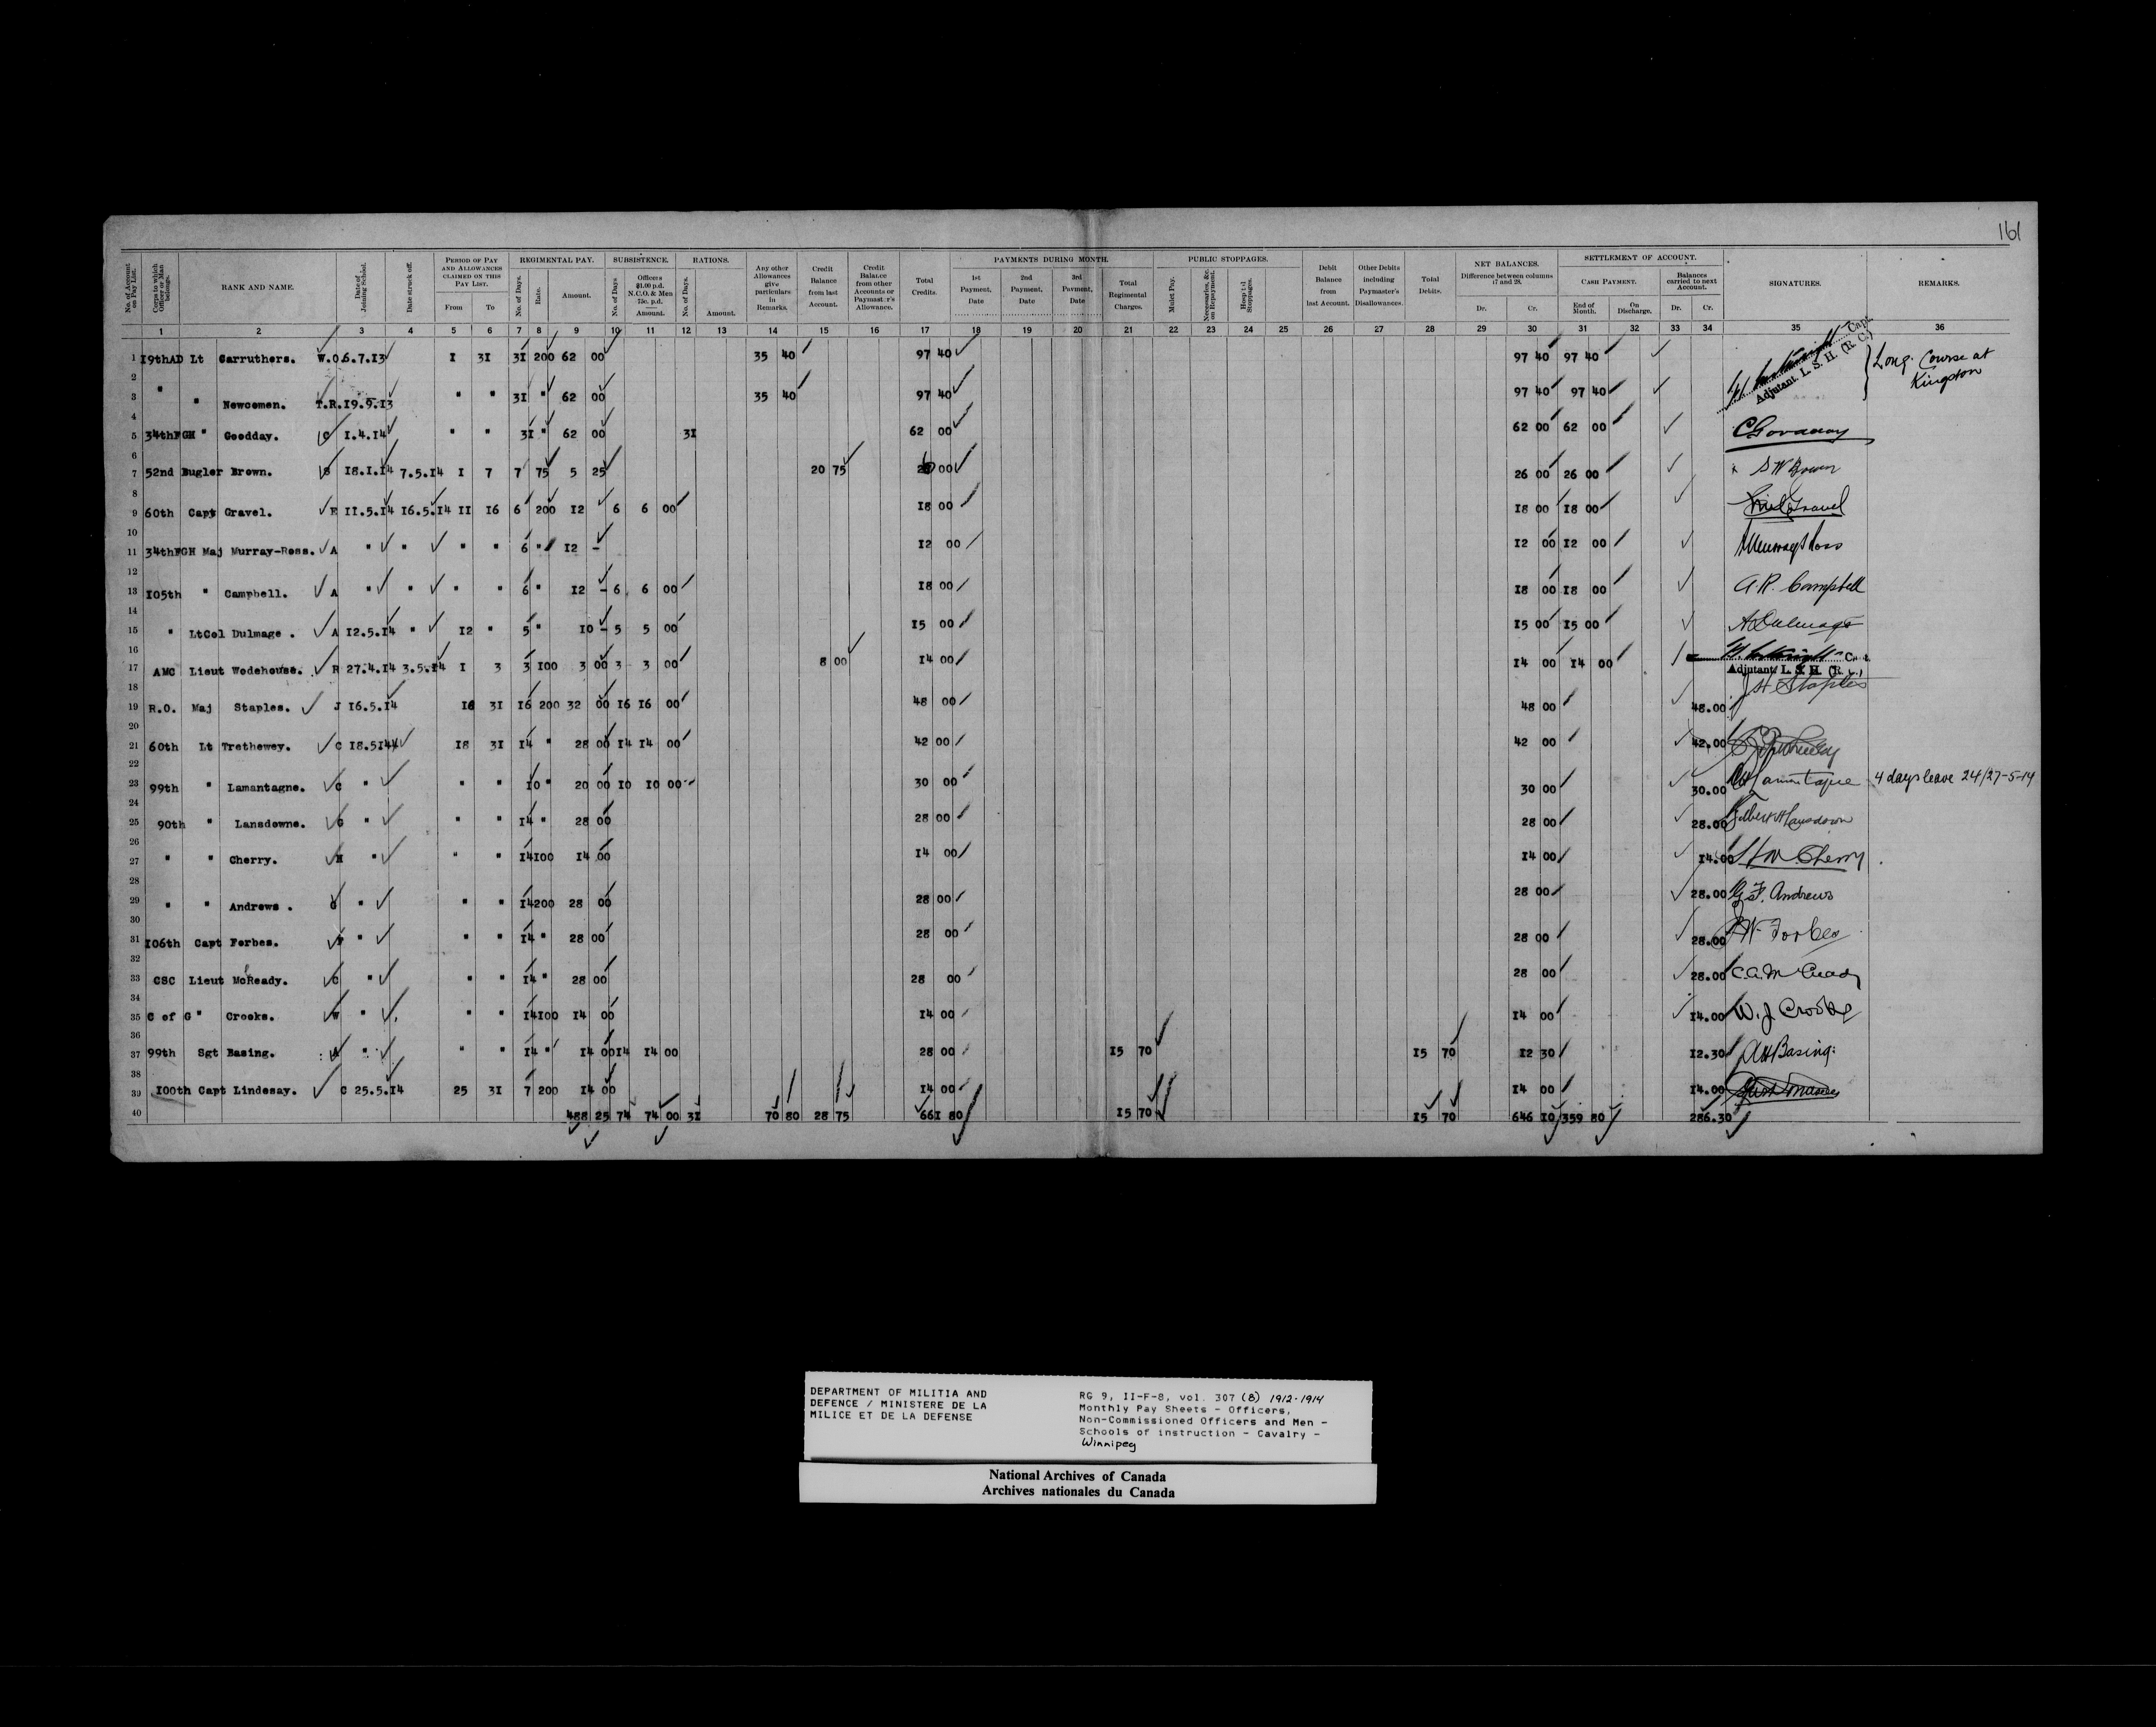 161
No. of Account on Pay List.
Corps to which Officer or Man belongs.
RANK AND NAME.
Date of Joining School.
Date struck off.
PERIOD OF PAY AND ALLOWANCES CLAIMED ON THIS PAY LIST.
From To
REGIMENTAL PAY.
No. of Days. Rate. Amount.
SUBSISTENCE.
No. of Days Officers $1.00 p.d. N.C.O. & Men 75c. p.d. Amount.
RATIONS.
No. of Days. Amount.
Any other Allowances give particulars in Remarks.
Credit Balance from last Account.
Credit Balance from other Accounts or Paymast'r's Allowance.
Total Credits.
PAYMENTS DURING MONTH.
1st Payment, Date
2nd Payment, Date
3rd Payment, Date
Total Regimental Charges.
PUBLIC STOPPAGES.
Mulct Pay.
Necessaries, &c. on Repayment.
Hospital Stoppages.
Debit Balance from last Account.
Other Debits including Paymaster's Disallowances.
Total Debits.
NET BALANCES.
Difference between columns 17 and 28.
Dr. Cr.
SETTLEMENT OF ACCOUNT.
CASH PAYMENT.
End of Month. On Discharge.
Balances carried to next Account.
Dr. Cr.
SIGNATURES.
REMARKS.
1 2 3 4 5 6 7 8 9 10 11 12 13 14 15 16 17 18 19 20 21 22 23 24 25 26 27 28 29 30 31 32 33 34 35 36
1 19thAD Lt Carruthers. W.O.6.7.13 1 31 31 200 62 00 35 40 97 40 97 40 97 40 Capt. Adjutant. L. S. H. (R. C.) Long Course at Kingston
2
3 " " Newcomen. T.R.19.9.13 " " 31 " 62 00 35 40 97 40 97 40 97 40
4
5 34thFGH " Goodday. C 1.4.14 " " 31 " 62 00 31 62 00 62 00 62 00
6
7 52nd Bugler Brown. S 18.1.14 7.5.14 1 7 7 75 5 25 20 75 26 00 26 00 26 00
8
9 60th Capt Gravel. E 11.5.14 16.5.14 11 16 6 200 12 6 6 00 18 00 18 00 18 00
10
11 34thFGH Maj Murray-Ross. A " " " " 6 " 12 - 12 00 12 00 12 00
12
13 105th " Campbell. A " " " " 6 " 12 - 6 6 00 18 00 18 00 18 00 A.R. Campbell
14
15 " LtCol Dulmage . A 12.5.14 " 12 " 5 " 10 - 5 5 00 15 00 15 00 15 00 A Dulmage
16
17 AMC Lieut Wodehouse. R 27.4.14 3.5.14 1 3 3 100 3 00 3 3 00 8 00 14 00 14 00 14 00 Adjutant L. S. H. (R. C.)
18
19 R.O. Maj Staples. J 16.5.14 16 31 16 200 32 00 16 16 00 48 00 48 00 48.00 Staples
20
21 60th Lt Trethewey. C 18.5144 18 31 14 " 28 00 14 14 00 42 00 42 00 42.00
22
23 99th " Lamantagne. C " " " 10 " 20 00 10 10 00 30 00 30 00 30.00 4 days leave 24/27-5-14
24
25 90th " Lansdowne. G " " " 14 " 28 00 28 00 28 00 28.00
26
27 " " Cherry. H " " " 14100 14 00 14 00 14 00 14.00 Cherry
28
29 " " Andrews . G " " " 14200 28 00 28 00 28 00 28.00 G.F. Andrews
30
31 106th Capt Forbes. " " " 14 " 28 00 28 00 28 00 28.00 Forbes
32
33 CSC Lieut McReady. C " " " 14 " 28 00 28 00 28 00 28.00 C.A. McCready
34
35 C of G " Crooks. W " " " 14100 14 00 14 00 14 00 14.00 W. J. Crooks
36
37 99th Sgt Basing. A " " " 14 " 14 0014 14 00 28 00 15 70 15 70 12 30 12.30 AH Basing
38
39 100th Capt Lindesay. C 25.5.14 25 31 7 200 14 00 14 00 14 00 14.00
40 488 25 74 74 00 31 70 80 28 75 661 80 15 70 15 70 646 10 359 80 286.30
DEPARTMENT OF MILITIA AND
DEFENCE / MINISTERE DE LA
MILICE ET DE LA DEFENSE
RG 9, II-F-8, vol. 307 (8) 1912-1914
Monthly Pay Sheets - Officers,
Non-Commissioned Officers and Men -
Schools of instruction - Cavalry -
Winnipeg
National Archives of Canada
Archives nationales du Canada